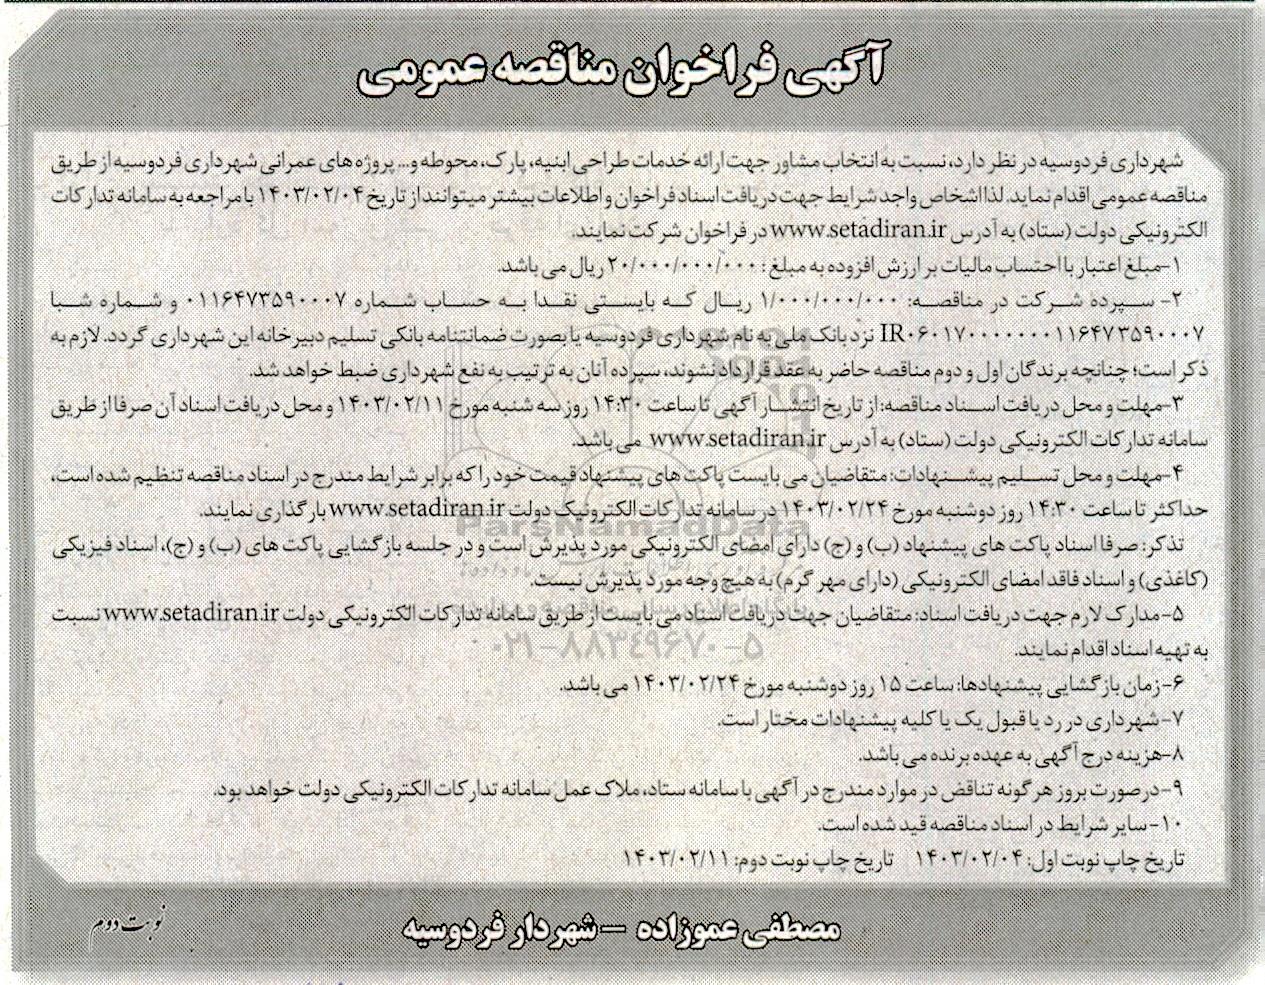 آگهی فراخوان مناقصه عمومی
شهرداری فردوسیه در نظر دارد، نسبت به انتخاب مشاور جهت ارائه خدمات طراحی ابنیه، پارک، محوطه و... پروژه های عمرانی شهرداری فردوسیه از طریق
مناقصه عمومی اقدام نماید. لذا اشخاص واجد شرایط جهت دریافت اسناد فراخوان و اطلاعات بیشتر میتوانند از تاریخ ۱۴۰۳/۰۲/۰۴ با مراجعه به سامانه تدارکات
الکترونیکی دولت (ستاد) به آدرس www.setadiran.ir در فراخوان شرکت نمایند.
۱-مبلغ اعتبار با احتساب مالیات بر ارزش افزوده به مبلغ: ۲۰/۰۰۰/۰۰۰/۰۰۰ ریال می باشد.
۲- سپرده شرکت در مناقصه: ۱/۰۰۰/۰۰۰/۰۰۰ ریال که بایستی نقدا به حساب شماره ۰۱۱۶۴۷۳۵۹۰۰۰۷ و شماره شبا
IR۰۶۰۱۷۰۰۰۰۰۰۰۱۱۶۴۷۳۵۹۰۰۰۷ نزد بانک ملی به نام شهرداری فردوسیه یا بصورت ضمانتنامه بانکی تسلیم دبیرخانه این شهرداری گردد. لازم به
ذکر است؛ چنانچه برندگان اول و دوم مناقصه حاضر به عقد قرارداد نشوند، سپرده آنان به ترتیب به نفع شهرداری ضبط خواهد شد.
۳-مهلت و محل دریافت اسناد مناقصه: از تاریخ انتشار آگهی تا ساعت ۱۴:۳۰ روز سه شنبه مورخ ۱۴۰۳/۰۲/۱۱ و محل دریافت اسناد آن صرفا از طریق
سامانه تدارکات الکترونیکی دولت (ستاد) به آدرس www.setadiran.ir می باشد.
۴-مهلت و محل تسلیم پیشنهادات: متقاضیان می بایست پاکت های پیشنهاد قیمت خود را که برابر شرایط مندرج در اسناد مناقصه تنظیم شده است،
حداکثر تا ساعت ۱۴:۳۰ روز دوشنبه مورخ ۱۴۰۳/۰۲/۲۴ در سامانه تدارکات الکترونیک دولت www.setadiran.ir بارگذاری نمایند.
تذکر: صرفا اسناد پاکت های پیشنهاد (ب) و (ج) دارای امضای الکترونیکی مورد پذیرش است و در جلسه بازگشایی پاکت های (ب) و (ج)، اسناد فیزیکی
(کاغذی) و اسناد فاقد امضای الکترونیکی (دارای مهر گرم) به هیچ وجه مورد پذیرش نیست.
۵-مدارک لازم جهت دریافت اسناد: متقاضیان جهت دریافت اسناد می بایست از طریق سامانه تدارکات الکترونیکی دولت www.setadiran.ir نسبت
به تهیه اسناد اقدام نمایند.
۶-زمان بازگشایی پیشنهادها: ساعت ۱۵ روز دوشنبه مورخ ۱۴۰۳/۰۲/۲۴ می باشد.
۷-شهرداری در رد یا قبول یک یا کلیه پیشنهادات مختار است.
۸-هزینه درج آگهی به عهده برنده می باشد.
۹-درصورت بروز هرگونه تناقض در موارد مندرج در آگهی با سامانه ستاد، ملاک عمل سامانه تدارکات الکترونیکی دولت خواهد بود.
۱۰-سایر شرایط در اسناد مناقصه قید شده است.
تاریخ چاپ نوبت اول: ۱۴۰۳/۰۲/۰۴ تاریخ چاپ نوبت دوم: ۱۴۰۳/۰۲/۱۱
مصطفی عموزاده – شهردار فردوسیه
نوبت دوم
ParsNamadData
۰۲۱-۸۸۳۴۹۶۷۰-۵